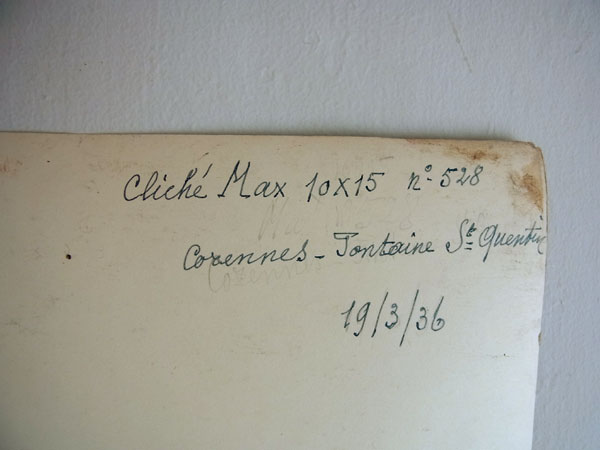 Cliché Max 10x15 n° 528
Corennes - Fontaine St Quentin
19/3/36